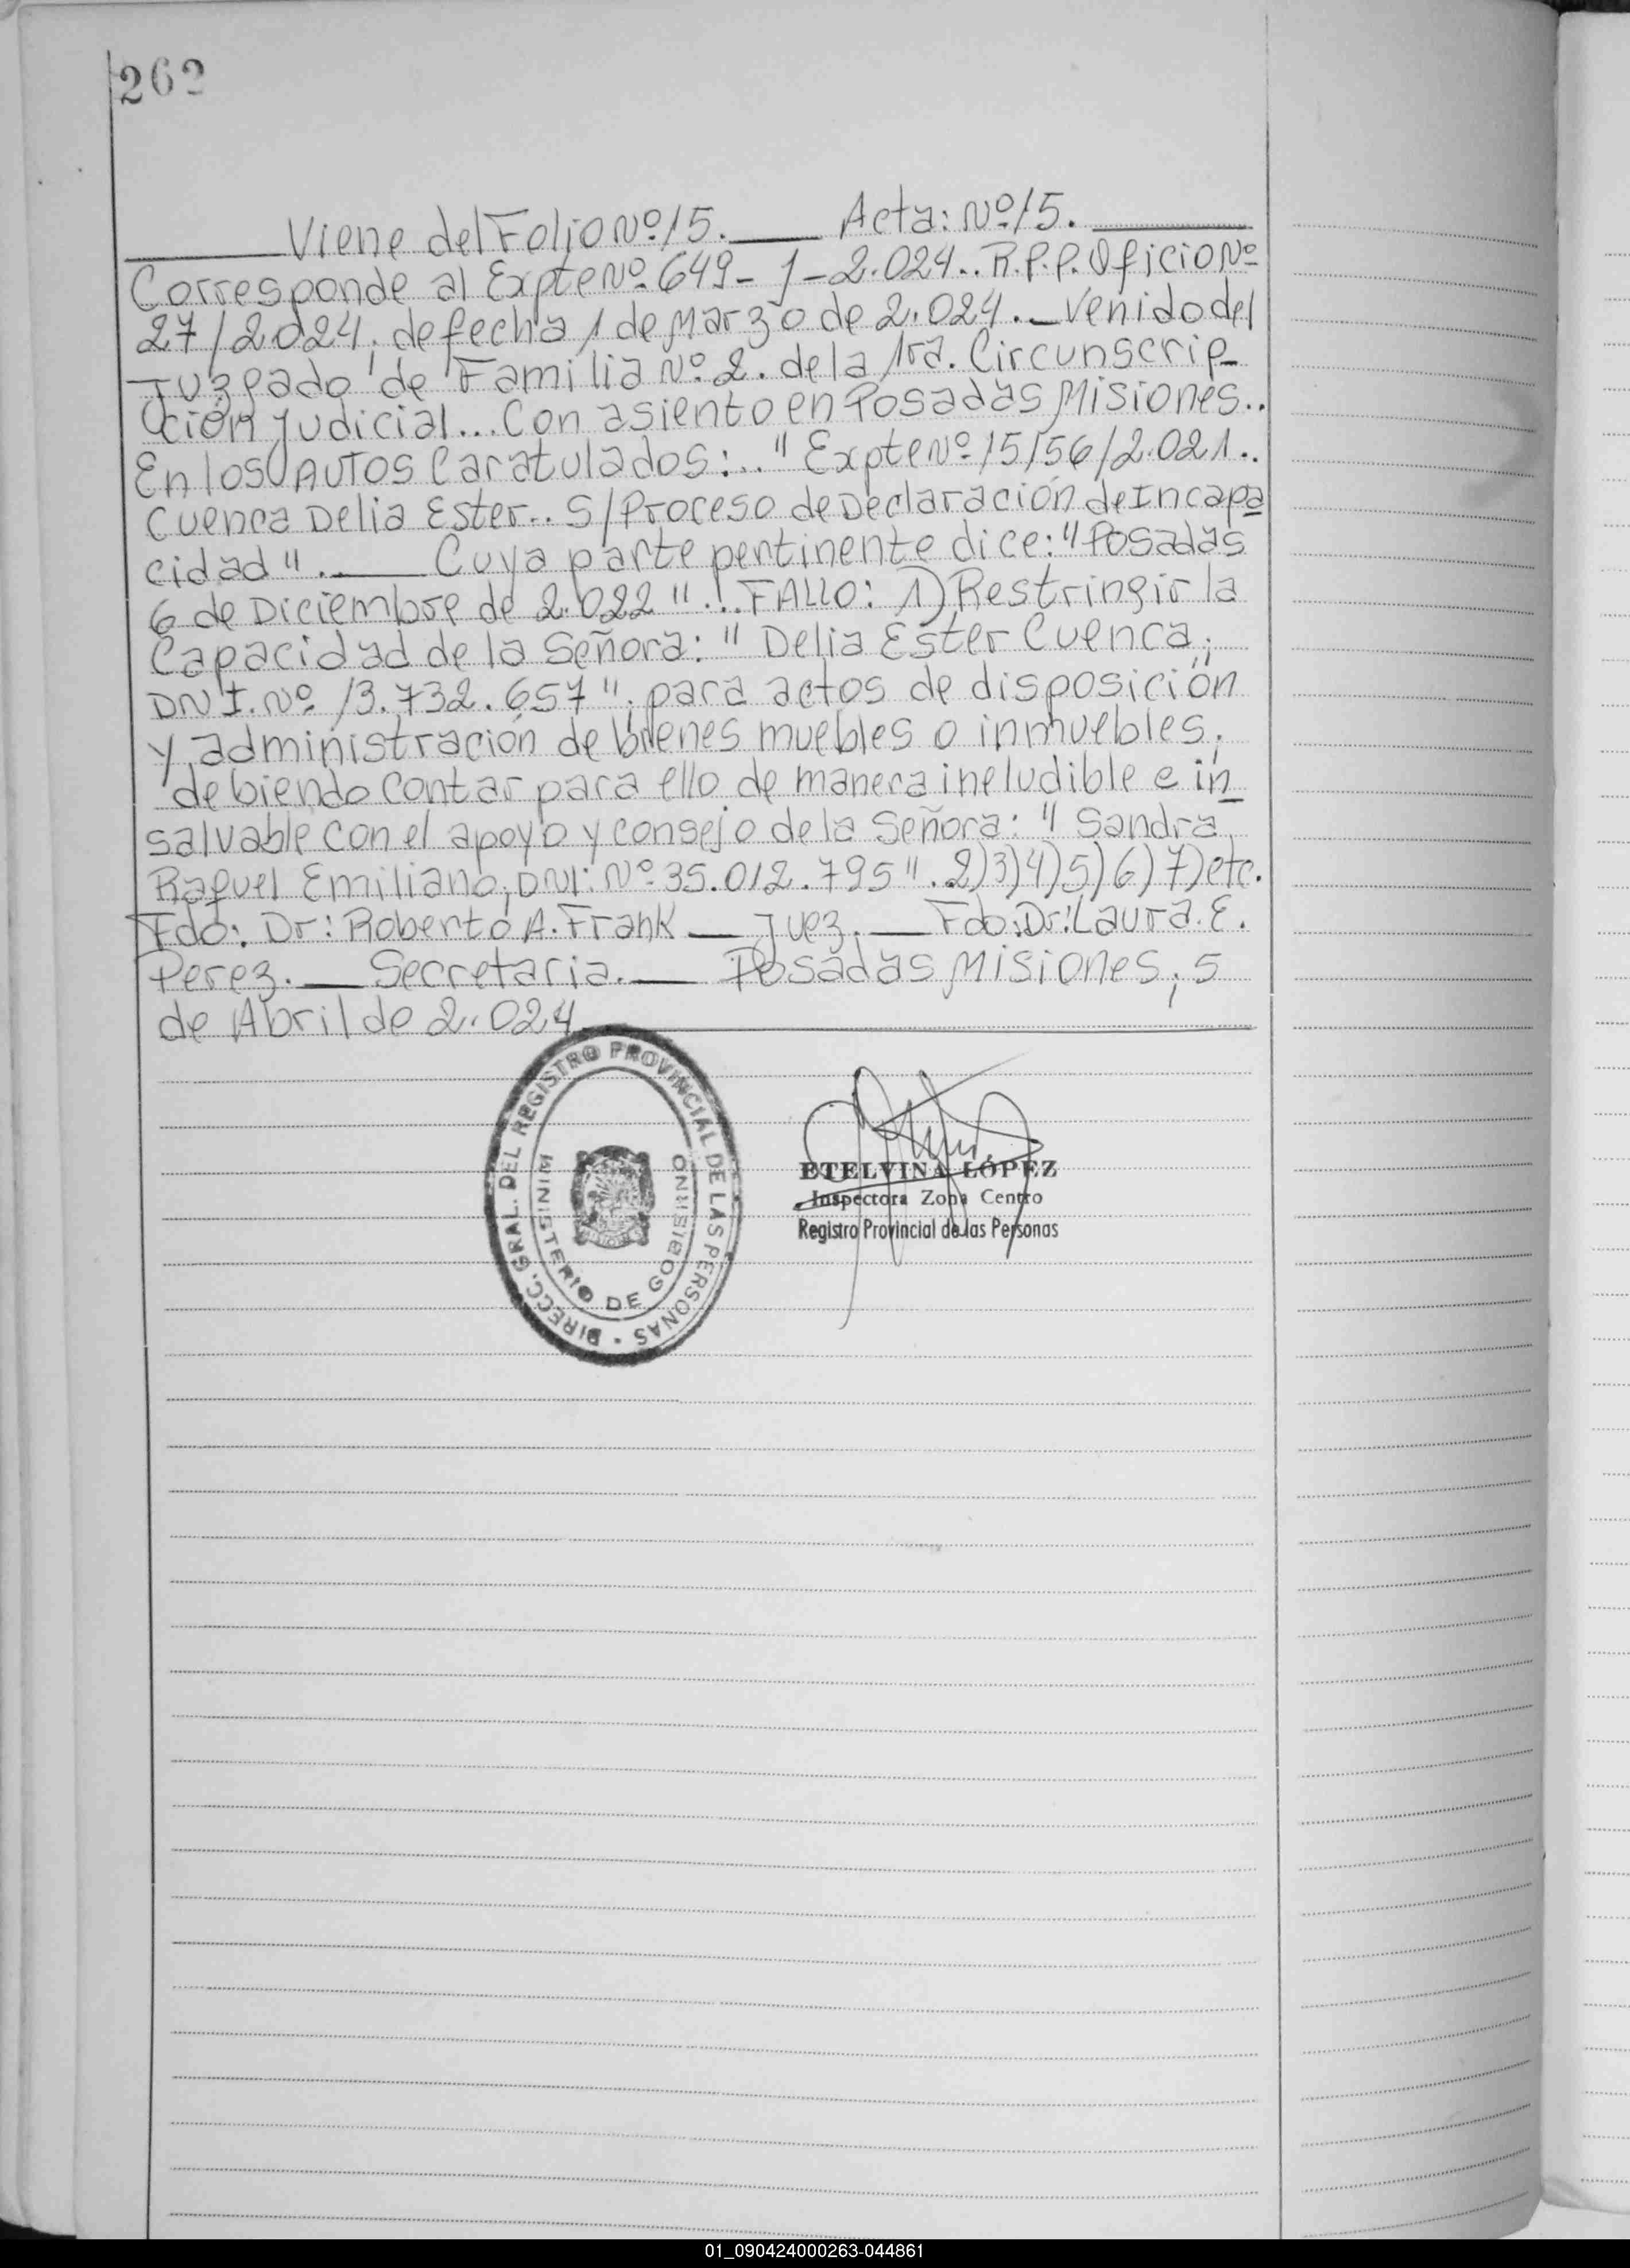 262
Viene del Folio Nº 15. Acta: Nº 15.
Corresponde al Expte Nº 649-J-2.024.. R.P.P. Oficio Nº
27/2.024, de fecha 1 de Marzo de 2.024. Venido del
Juzgado de Familia Nº 2. de la 1ra. Circunscrip-
ción Judicial... Con asiento en Posadas Misiones..
En los AUTOS Caratulados:.. "Expte Nº 15156/2.021..
Cuenca Delia Ester.. S/Proceso de Declaración de Incapa
cidad". Cuya parte pertinente dice: "Posadas
6 de Diciembre de 2.022"... FALLO: 1) Restringir la
Capacidad de la Señora: "Delia Ester Cuenca,
DNI. Nº 13.732.657", para actos de disposición
y administración de bienes muebles o inmuebles,
debiendo contar para ello de manera ineludible e in
salvable con el apoyo y consejo de la Señora: "Sandra
Raquel Emiliano, DNI: Nº 35.012.795". 2)3)4)5)6)7) etc.
Fdo: Dr: Roberto A. Frank — Juez. — Fdo: Dr: Laura. E.
Perez. — Secretaria. — Posadas Misiones, 5
de Abril de 2.024
DIRECC. GRAL. DEL REGISTRO PROVINCIAL DE LAS PERSONAS
MINISTERIO DE GOBIERNO
ETELVINA LÓPEZ
Inspectora Zona Centro
Registro Provincial de las Personas
01_090424000263-044861